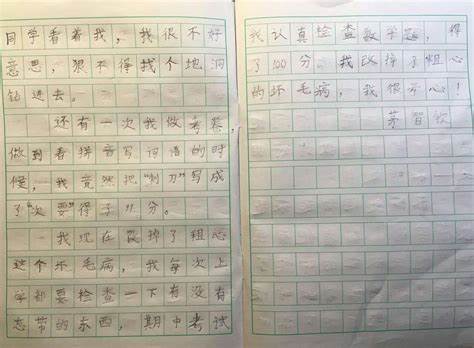 同学看着我，我很不好
意思，狠不得找个地洞
钻进去。
还有一次我做考卷，
做到看拼音写词语的时
候，我竟然把"刺刀"写成
了"次要"得了 分。
我现在改掉了粗心
这个坏毛病，我每次上
学都要检查一下有没有
忘带的东西，期中考试
我认真检查数学题，得
了100分。我改掉了粗心
的坏毛病，我很开心！